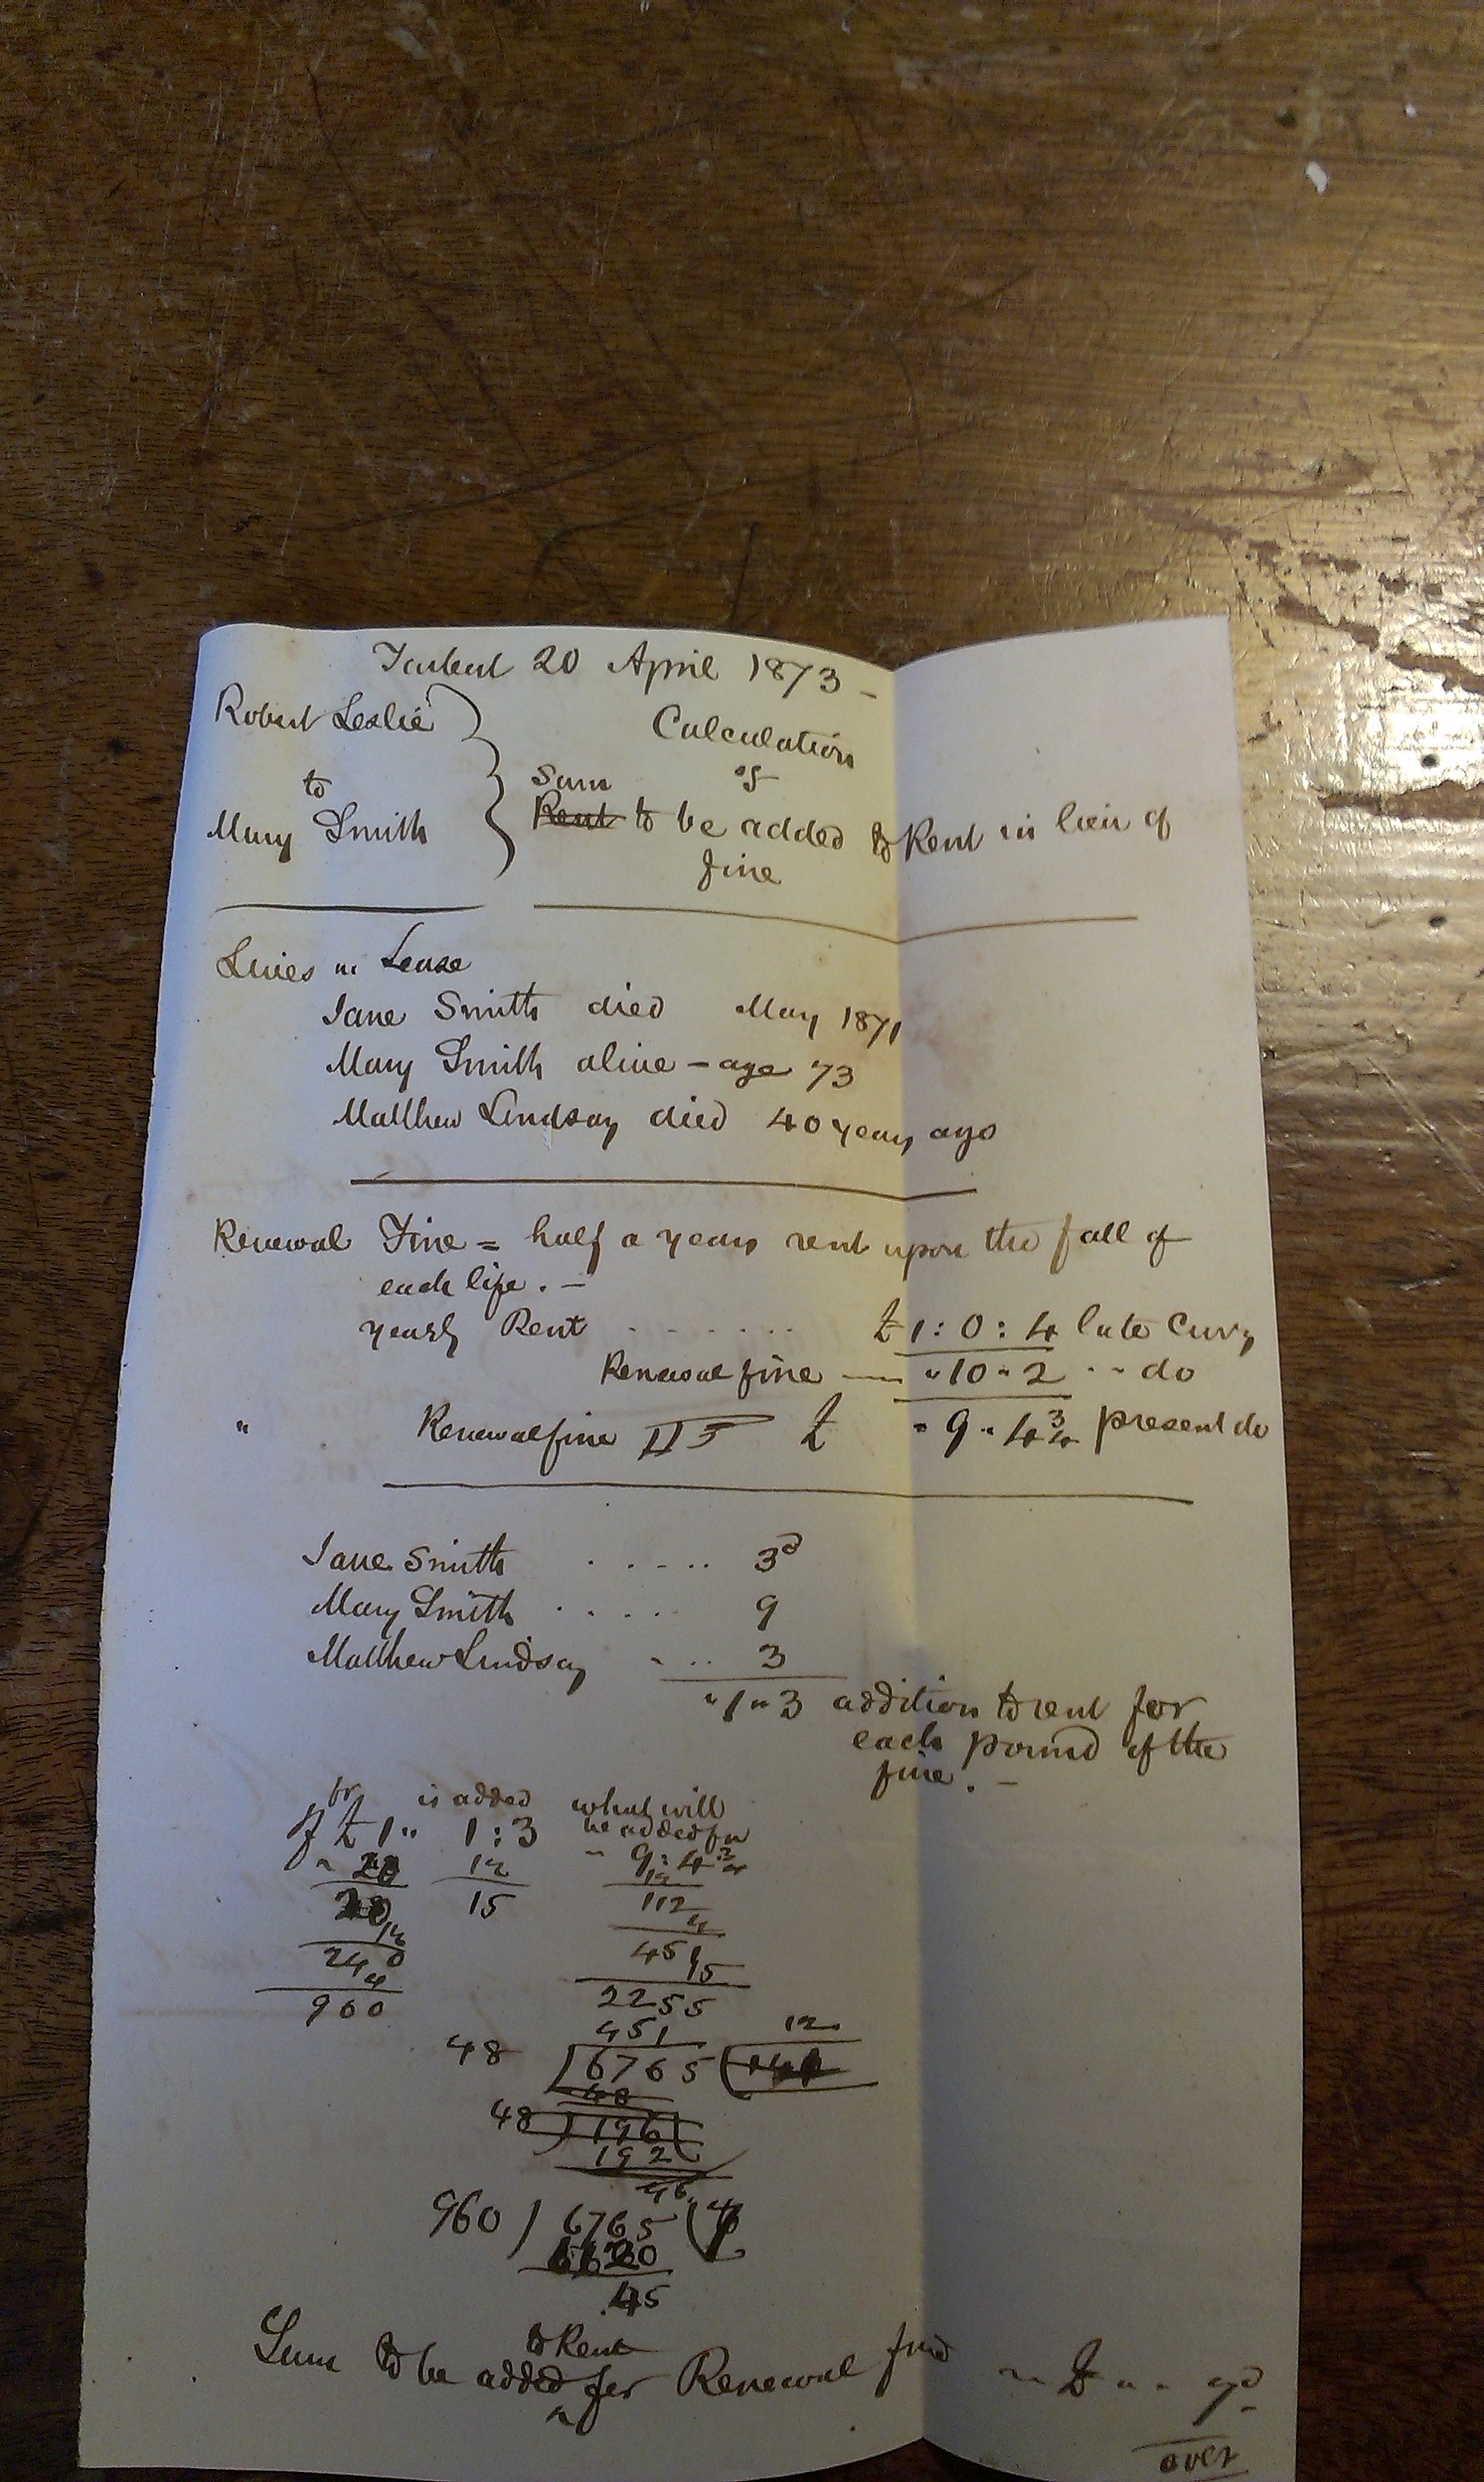 Tarbert 20 April 1873 -
Robert Leslie
to
Mary Smith
Calculation
of
Sum
Rent to be added to Rent in lieu of
fine
Lives in Lease
Jane Smith died May 1871
Mary Smith alive - age 73
Matthew Lindsay died 40 years ago
Renewal Fine = half a years rent upon the fall of
each life. -
yearly Rent . . . . . . £1 : 0 : 4 late Curry
Renewal fine — " 10 " 2 " " do
" Renewal fine £ " 9 " 4 3/4 present do
Jane Smith . . . . . 3d
Mary Smith . . . . . 9
Matthew Lindsay . . . 3
" 1 " 3 addition to rent for
each pound of the
fine. -
for is added what will
If £1 " 1 : 3 be added for
" 20 12 " 9 : 4 3/4
12
20 15 112
12 4
240 451
4 15
960 2255
451 12
48 6765
48
48 196
192
46
960 ) 6765 ( 7
6720
45
to Rent
Sum to be added for Renewal fine " £ " " 7d
over